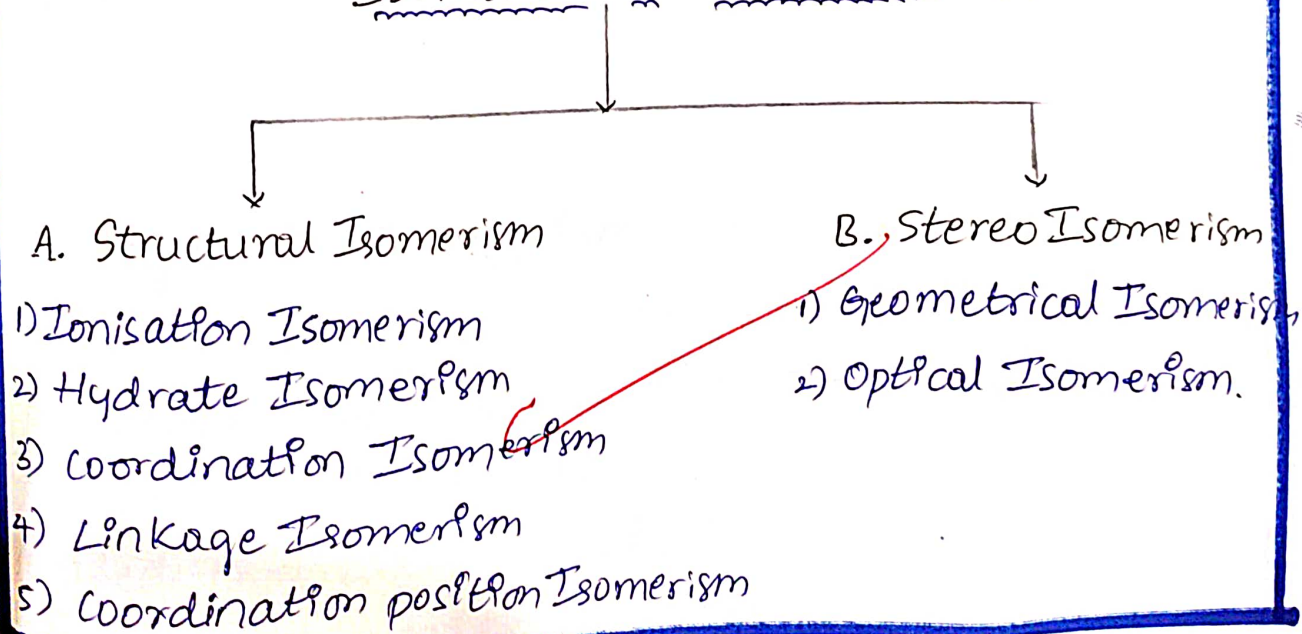 A. Structural Isomerism
1) Ionisation Isomerism
2) Hydrate Isomerism
3) Coordination Isomerism
4) Linkage Isomerism
5) Coordination position Isomerism
B. Stereo Isomerism
1) Geometrical Isomerism
2) Optical Isomerism.